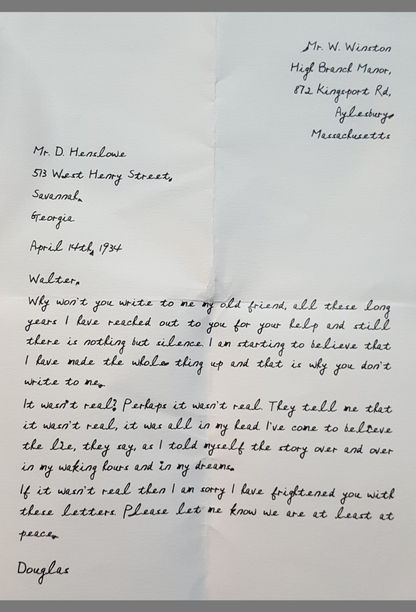 Mr. W. Winston
High Branch Manor,
872 Kingsport Rd,
Aylesbury,
Massachusetts
Mr. D. Henslowe
513 West Henry Street,
Savannah,
Georgia
April 14th, 1934
Walter,
Why won't you write to me my old friend, all these long
years I have reached out to you for your help and still
there is nothing but silence. I am starting to believe that
I have made the whole thing up and that is why you don't
write to me.
It wasn't real? Perhaps it wasn't real. They tell me that
it wasn't real, it was all in my head I've come to believe
the lie, they say, as I told myself the story over and over
in my waking hours and in my dreams.
If it wasn't real then I am sorry I have frightened you with
these letters. Please let me know we are at least at
peace.
Douglas